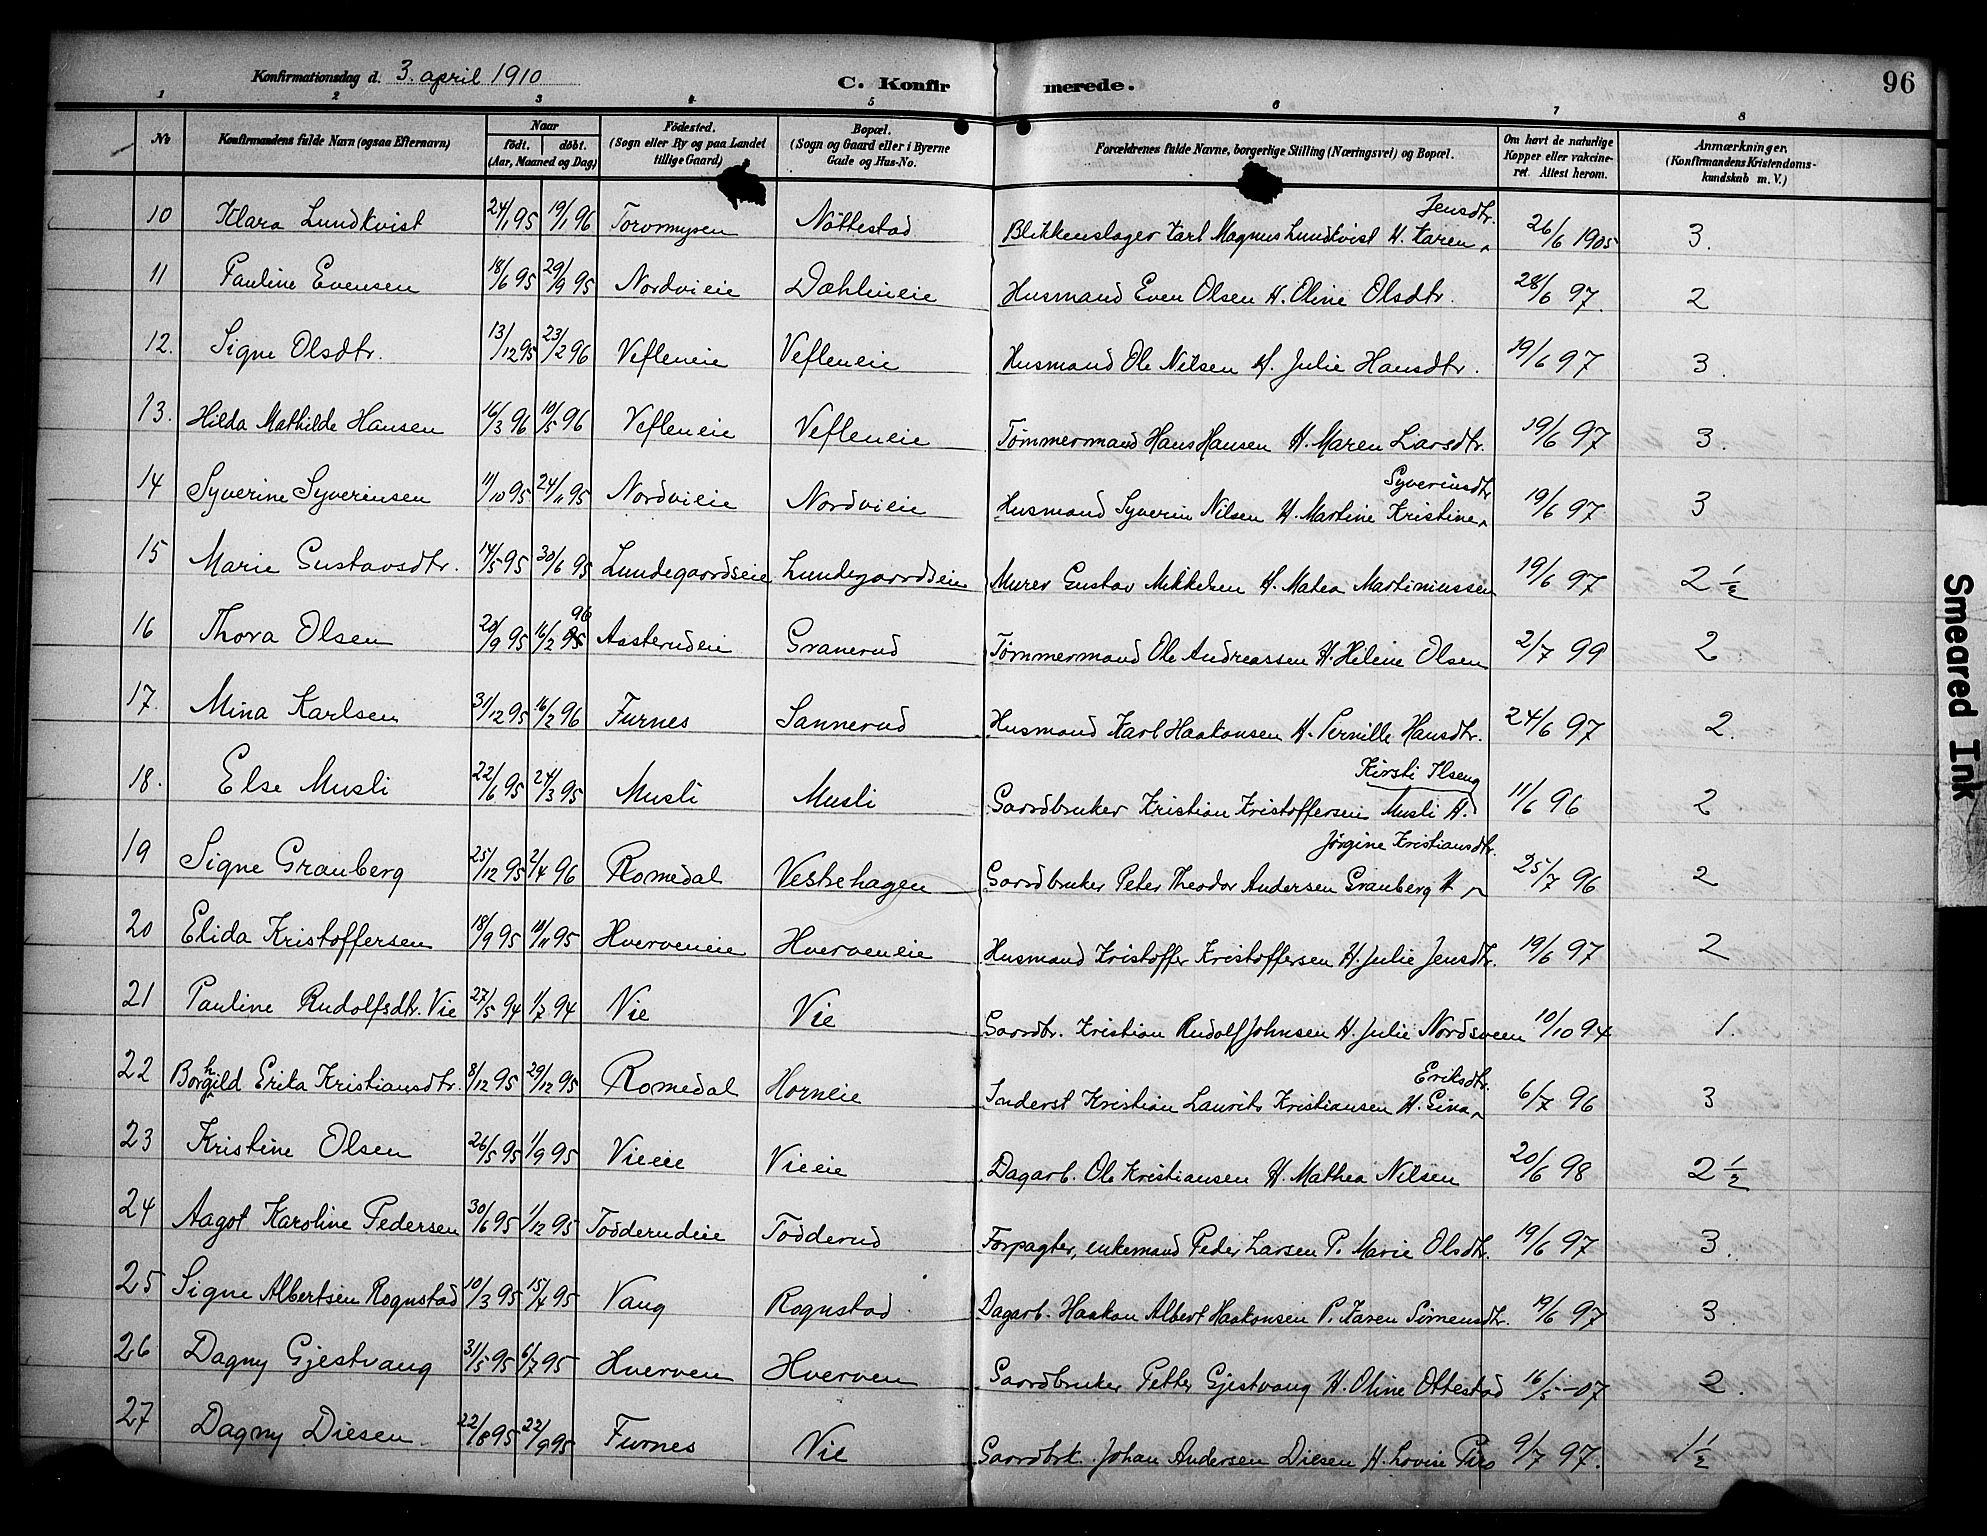 Konfirmationsdag d. 3. april 1910
C. Konfirmerede.
96
1 2 3 4 5 6 7 8
No Konfirmandens fulde Navn (ogsaa Efternavn) Naar født. døbt. (Aar, Maaned og Dag) Fødested. (Sogn eller By og paa Landet tillige Gaard) Bopæl. (Sogn og Gaard eller i Byerne Gade og Hus-No. Forældrenes fulde Navne, borgerlige Stilling (Næringsvei) og Bopæl. Om havt de naturlige Kopper eller vakcineret. Attest herom. Anmærkninger. (Konfirmandens Kristendomskundskab m. V.)
10 Klara Lundkvist 24/1 95 19/1 96 Torvmyren Nøttestad Blikkenslager Karl Magnus Lundkvist H. Karen Jensdtr. 26/6 1905 3.
11 Pauline Evensen 18/6 95 29/9 95 Nordvieie Dæhlineie Husmand Even Olsen H. Oline Olsdtr. 28/6 97. 2
12. Signe Olsdtr. 13/12 95 23/2 96 Vefleneie Vefleneie Husmand Ole Nilsen H. Julie Hansdtr. 19/6 97 3.
13. Hilda Mathilde Hansen 16/3 96 10/5 96 Vefleneie Vefleneie Tømmermand Hans Hansen H. Maren Larsdtr. 19/6 97 3.
14 Syverine Syverinsen 11/10 95 24/11 95 Nordvieie Nordvieie Husmand Syverin Nilsen H. Martine Kristine Syverinsdtr 19/6 97 3
15 Marie Gustavsdtr. 14/5 95 30/6 95 Lundegaardseie Lundegaardseie Murer Gustav Mikkelsen H. Matea Martiniussen 19/6 97 2 1/2
16 Thora Olsen 20/9 95 16/2 96 Aasterudeie Granerud Tømmermand Ole Andreassen H. Helene Olsen 2/7 99 2
17. Mina Karlsen 31/12 95 16/2 96 Furnes Sannerud Husmand Karl Haakonsen H. Pernille Hansdtr. 24/6 97 2.
18. Else Musli 22/6 95 24/3 95 Musli Musli Gaardbruker Kristian Kristoffersen Musli H. Kirsti Ilseng 11/6 96 2
19 Signe Granberg 25/12 95 2/4 96 Romedal Vestrehagen Gaardbruker Peter Theodor Andersen Granberg H Jørgine Kristiansdtr. 25/7 96 2
20 Elida Kristoffersen 18/9 95 10/11 95 Hverveneie Hverveneie Husmand Kristoffer Kristoffersen H. Julie Jensdtr. 19/6 97 2
21 Pauline Rudolfsdtr. Vie 27/5 94 1/7 94 Vie Vie Gaardbr. Kristian Rudolf Johnsen H. Julie Nordsveen 10/10 94 1.
22 Borghild Erika Kristiansdtr. 8/12 95 29/12 95 Romedal Horneie Inderst Kristian Laurits Kristiansen H. Gina Eriksdtr. 6/7 96 3
23 Kristine Olsen 26/5 95 1/9 95 Vieeie Vieeie Dagarb. Ole Kristiansen H. Mathea Nilsen 20/6 98 2 1/2
24 Aagot Karoline Pedersen 30/6 95 1/12 95 Todderudeie Todderud Forpagter, enkemand Peder Larsen P. Marie Olsdtr. 19/6 97 3.
25 Signe Albertsen Rognstad 10/3 95 15/4 95 Vang Rognstad. Dagarb. Haakon Albert Haakonsen P. Karen Simensdtr. 19/6 97 3.
26 Dagny Gjestvang 31/5 95 6/7 95 Hverven Hverven Gaardbruker Petter Gjestvang H. Oline Ottestad 16/5-07 2.
27 Dagny Diesen 22/8 95 22/9 95 Furnes Vie Gaardbrk. Johan Andersen Diesen H. Lovise 9/7 97. 1 1/2
Smeared Ink